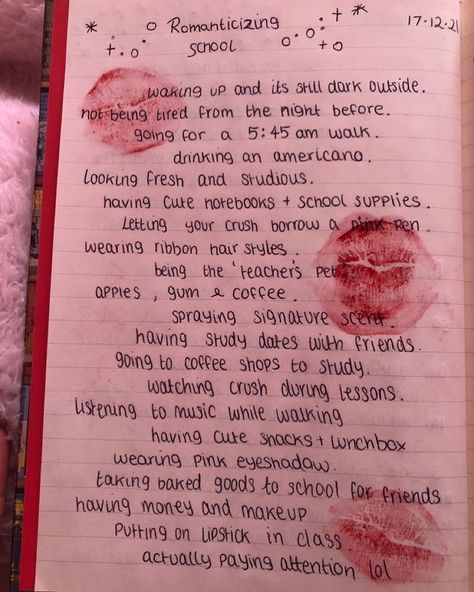 Romanticizing
School
17-12-21
waking up and its still dark outside.
not being tired from the night before.
going for a 5:45 am walk.
drinking an americano.
looking fresh and studious.
having cute notebooks + school supplies.
Letting your crush borrow a pink pen
wearing ribbon hair styles.
being the 'teacher's pet'.
apples, gum & coffee.
spraying signature scent.
having study dates with friends.
going to coffee shops to study.
watching crush during lessons.
listening to music while walking
having cute snacks + lunchbox
wearing pink eyeshadow.
taking baked goods to school for friends
having money and makeup
putting on lipstick in class
actually paying attention lol